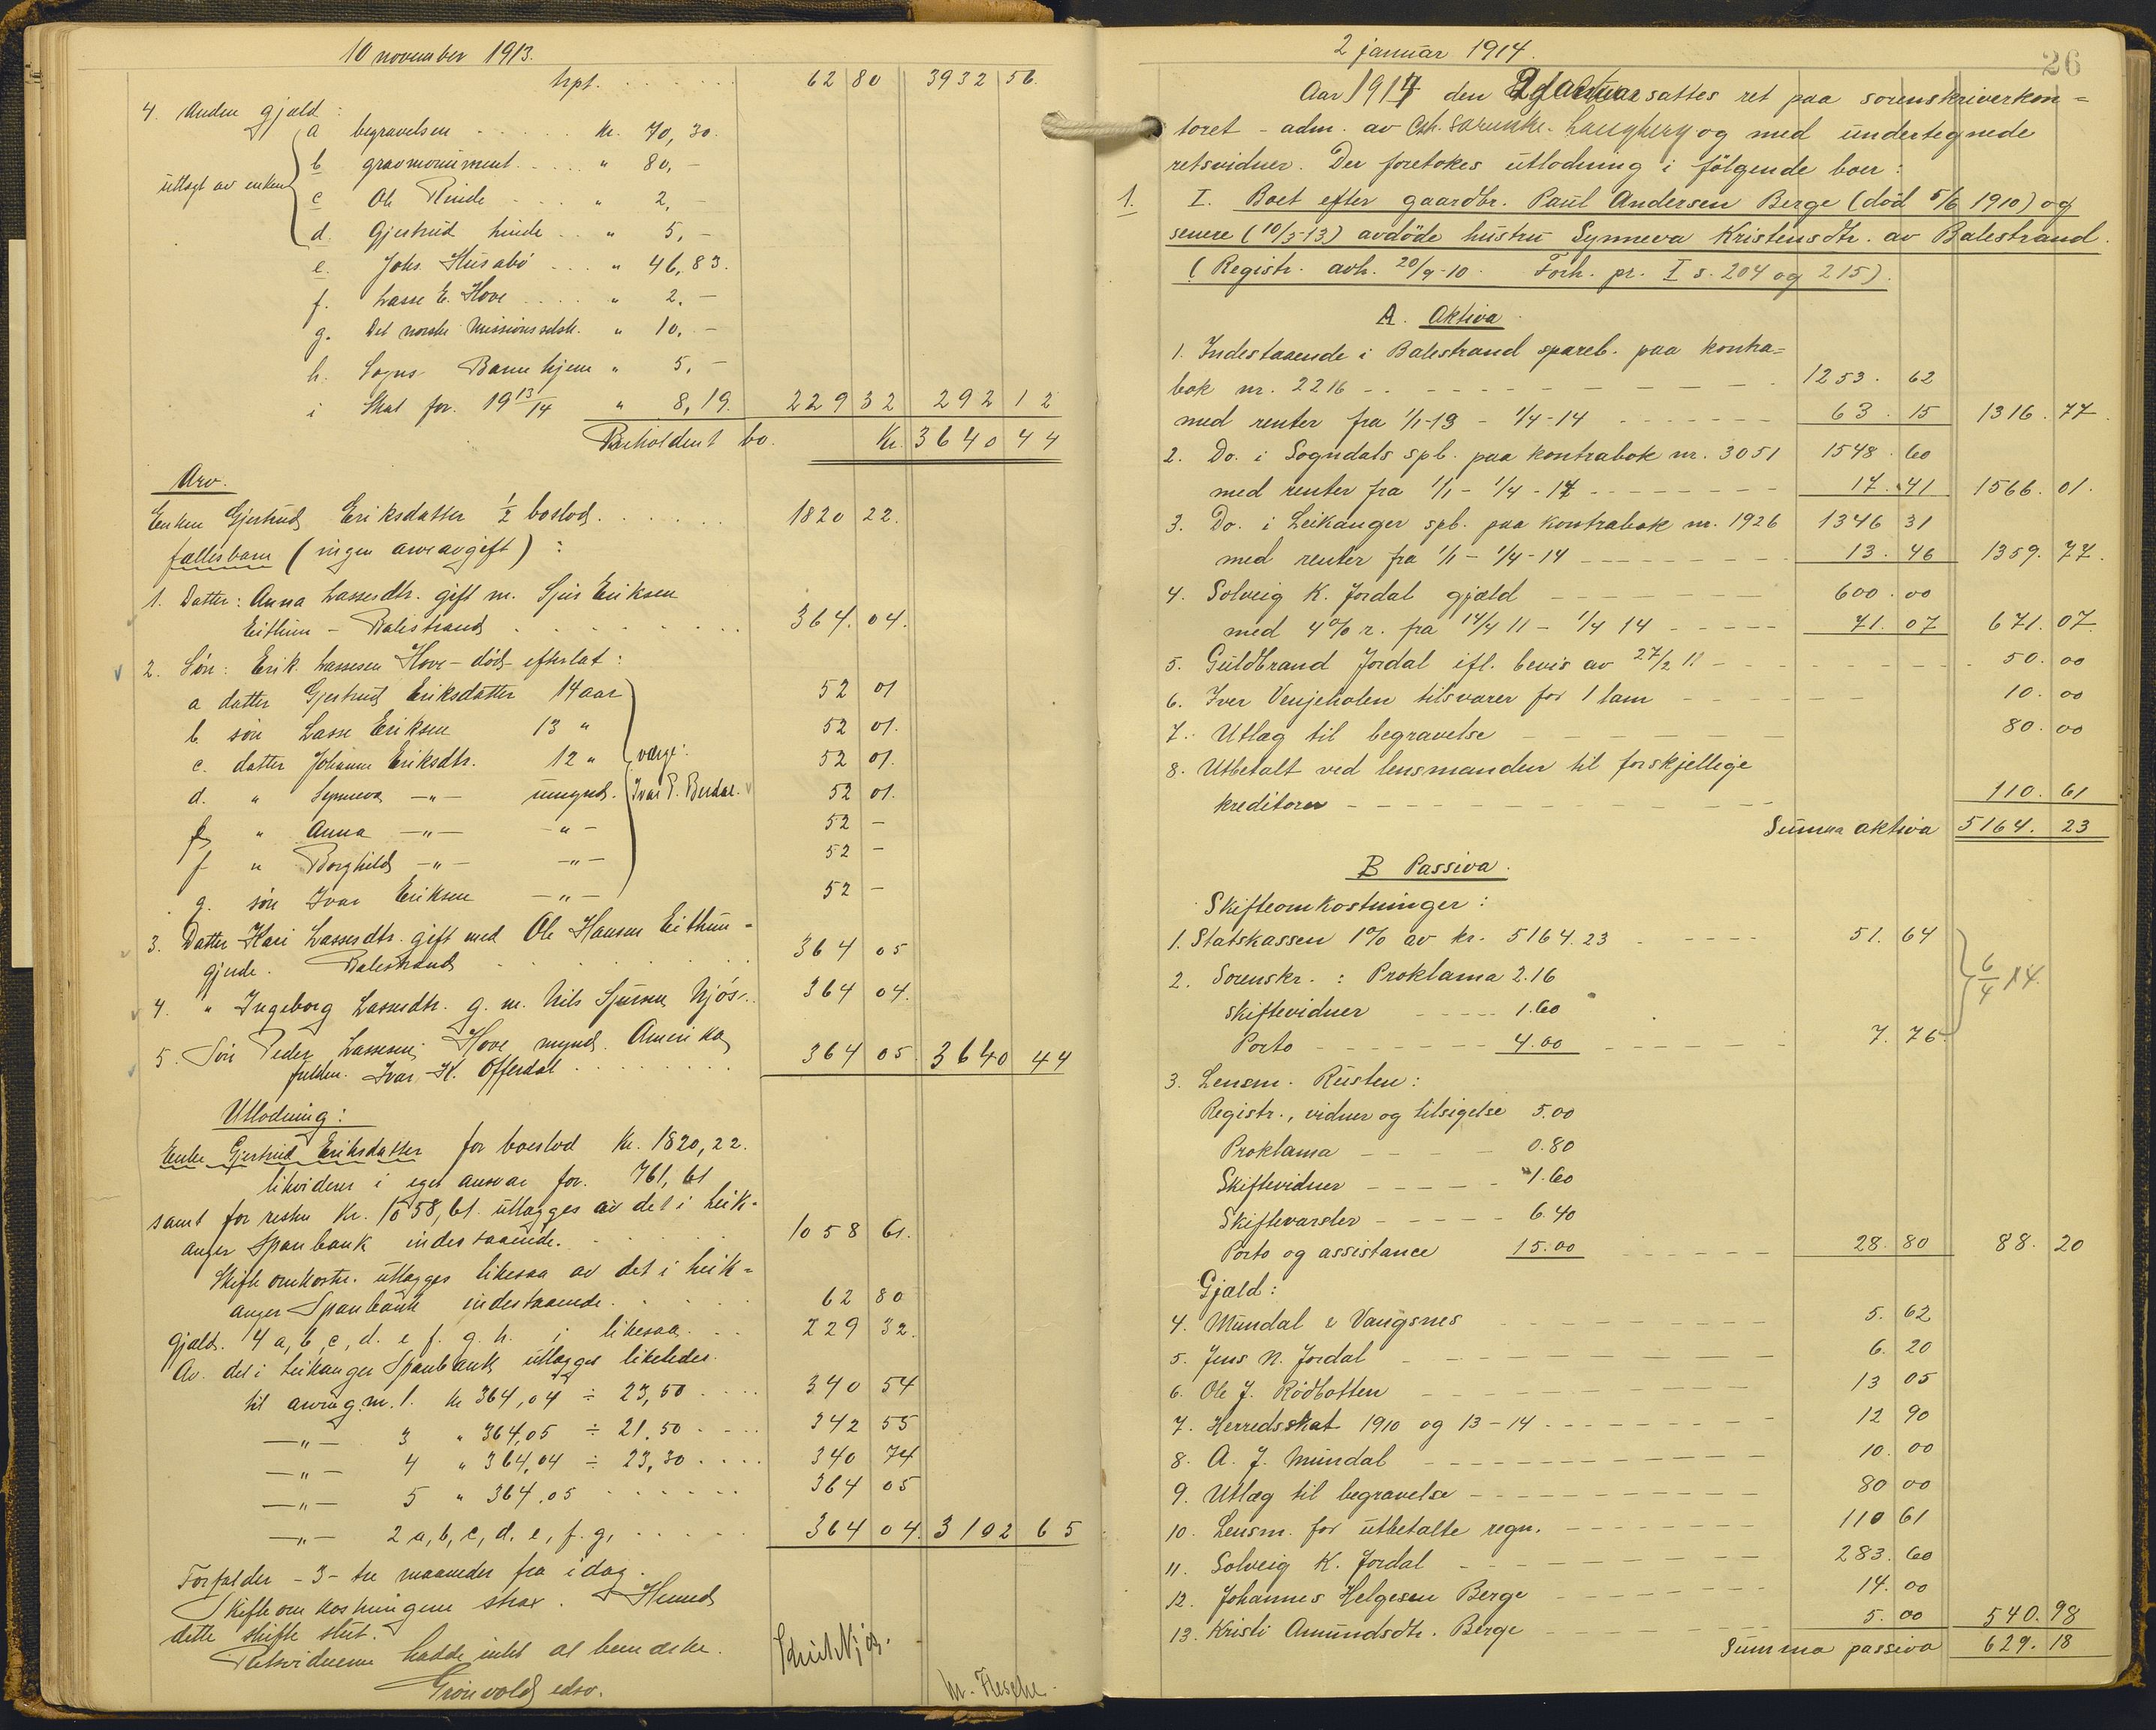 10 november 1913.
hpt. . . . . . . 62 80 3932 56.
4. Anden gjæld:
a begravelsen . . . . . . kr. 70,30.
b gravmonument . . . . . " 80,-
utlagt av enken
c Ole Rinde . . . . " 2,-
d. Gjertrud Linde . . " 5,-
e. Johs. Husabö . . . " 46,83.
f. Lasse E. Hove . . . . " 2.-
g. Det norske Missionsselsk. " 10.-
h. Sogns Barnehjem " 5,-
i Skat for 19 13/14 " 8,19. 229 32 292 12
Beholdent bo. Kr. 3640 44
Arv.
Enken Gjertrud Eriksdatter 1/2 boslod. . . . . . . 1820 22.
fællesbarn (ingen arveavgift) :
1. Datter: Anna Lassesdtr. gift m. Sjur Eriksen
Eithun - Balestrand . . . . . . . 364. 04.
2. Sön: Erik Lassesen Hove - död - efterlat:
a datter Gjertrud Eriksdatter 14 aar 52 01
b. sön Lasse Eriksen 13 " 52 01.
c. datter Johanne Eriksdtr. 12 " værge: 52 01.
d. " Synneva -"- umynd. Ivar P. Berdal. 52 01.
e " Anna -"- -"- 52 -
f " Borghild -"- -"- 52 -
g. sön Ivar Eriksen -"- 52 -
3. Datter Kari Lassesdtr. gift med Ole Hansen Eithun-
gjerde. Balestrand . . . . . . . 364 05
4. " Ingeborg Lassesdtr. g. m. Nils Sjursen Njös. . 364 04.
5. Sön Peder Lassesen Hove mynd. Amerika
fuldm. Ivar K. Offerdal . . . . . . . . 364 05. 3640 44
Utlodning:
Enke Gjertrud Eriksdatter for boeslod Kr. 1820,22.
likviderer i eget ansvar for. 761,61
samt for resten Kr. 1058,61. utlægges av det i Leik-
anger Sparebank indestaaende. . . . . . 1058 61.
Skifteomkostn. utlægges likesaa av det i Leik-
anger Sparebank indestaaende. . . . . 62 80
Gjæld. 4 a, b, c, d. e f. g. h. i likesaa. . . 229 32.
Av det i Leikanger Sparebank utlægges likeledes
til arving n. 1. kr 364,04 ÷ 23,50 . . . . 340 54
-"- 3 " 364,05 ÷ 21.50 . . . . 342 55
-"- 4 " 364,04 ÷ 23,30 . . . . 340 74
-"- 5 " 364.05 . . . . . . . 364 05
-"- 2 a, b, c, d. e, f. g, . . . . . 364 04. 3102 65
Forfalder - 3 - tre maaneder fra idag.
Skifteomkostningene strax. Hermed
dette skifte slut.
Retsvidnerne hadde intet at bemærke.
Grönvold edsv.
M. Flesche.
2 januar 1914.
26
Aar 1914 den 2 januar sattes ret paa sorenskriverkon=
toret - adm. av og med undertegnede
retsvidner. Der foretokes utlodning i fölgende boer:
1. I. Boet efter gaardbr. Paul Andersen Berge (död 5/6 1910) og
senere (10/3-13) avdöde hustru Synneva Kristensdtr. av Balestrand.
(Registr. avh. 20/9-10. Forh. pr. I s. 204 og 215).
A. Aktiva.
1. Indestaaende i Balestrand spareb. paa kontra=
bok nr. 2216 - - - - - - - - - - 1253. 62
med renter fra 1/1-13 - 1/4-14 - - - - - - - 63. 15 1316. 77.
2. Do. i Sogndals spb. paa kontrabok nr. 3051 1548. 60
med renter fra 1/1 - 1/4 - 14 - - - - - - - - 17. 41 1566. 01.
3. Do. i Leikanger spb. paa kontrabok nr. 1926 1346 31
med renter fra 1/1 - 1/4-14 - - - - - - - - - 13. 46 1359. 77.
4. Solveig K. Jordal gjæld - - - - - - - 600. 00
med 4% r. fra 14/4 11 - 1/4 14 - - - - - 71. 07 671. 07.
5. Guldbrand Jordal ifl. bevis av 27/2 11 - - - - - - - - - - 50. 00
6. Iver Venjeholen tilsvarer for 1 lam - - - - - - 10. 00
7. Utlæg til begravelse - - - - - - - - 80. 00
8. Utbetalt ved lensmanden til forskjellige
kreditorer - - - - - - - - - - - - - 110. 61
Summa aktiva 5164. 23
B Passiva.
Skifteomkostninger:
1. Statskassen 1% av kr. 5164.23 - - - - - 51. 64
2. Sorenskr. : Proklama 2.16
skiftevidner - - - - - 1.60
6/4 14.
Porto - - - - - - - 4.00 - - - - - - - 7. 76
3. Lensm. Rusten:
Registr., vidner og tilsigelse 5.00
Proklama - - - - - 0.80
Skiftevidner - - - - - 1.60
Skiftevarsler - - - - - 6.40
Porto og assistance 15.00 - - - - - - 28. 80 88. 20
Gjæld:
4. Mundal & Vangsnes - - - - - - - - - 5. 62
5. Jens N. Jordal - - - - - - - - - - - 6. 20
6. Ole J. Rödbotten - - - - - - - - - - 13 05
7. Herredsskat 1910 og 13-14 - - - - - - - - 12 90
8. A. J. Mundal - - - - - - - - - - - - 10. 00
9. Utlæg til begravelse - - - - - - - - - - 80 00
10. Lensm. for utbetalte regn. - - - - - - - - 110 61
11. Solveig K. Jordal - - - - - - - - - 283. 60
12. Johannes Helgesen Berge - - - - - - - 14. 00
13. Kristi Amundsdtr. Berge - - - - - - - 5. 00 540. 98
Summa passiva 629. 18